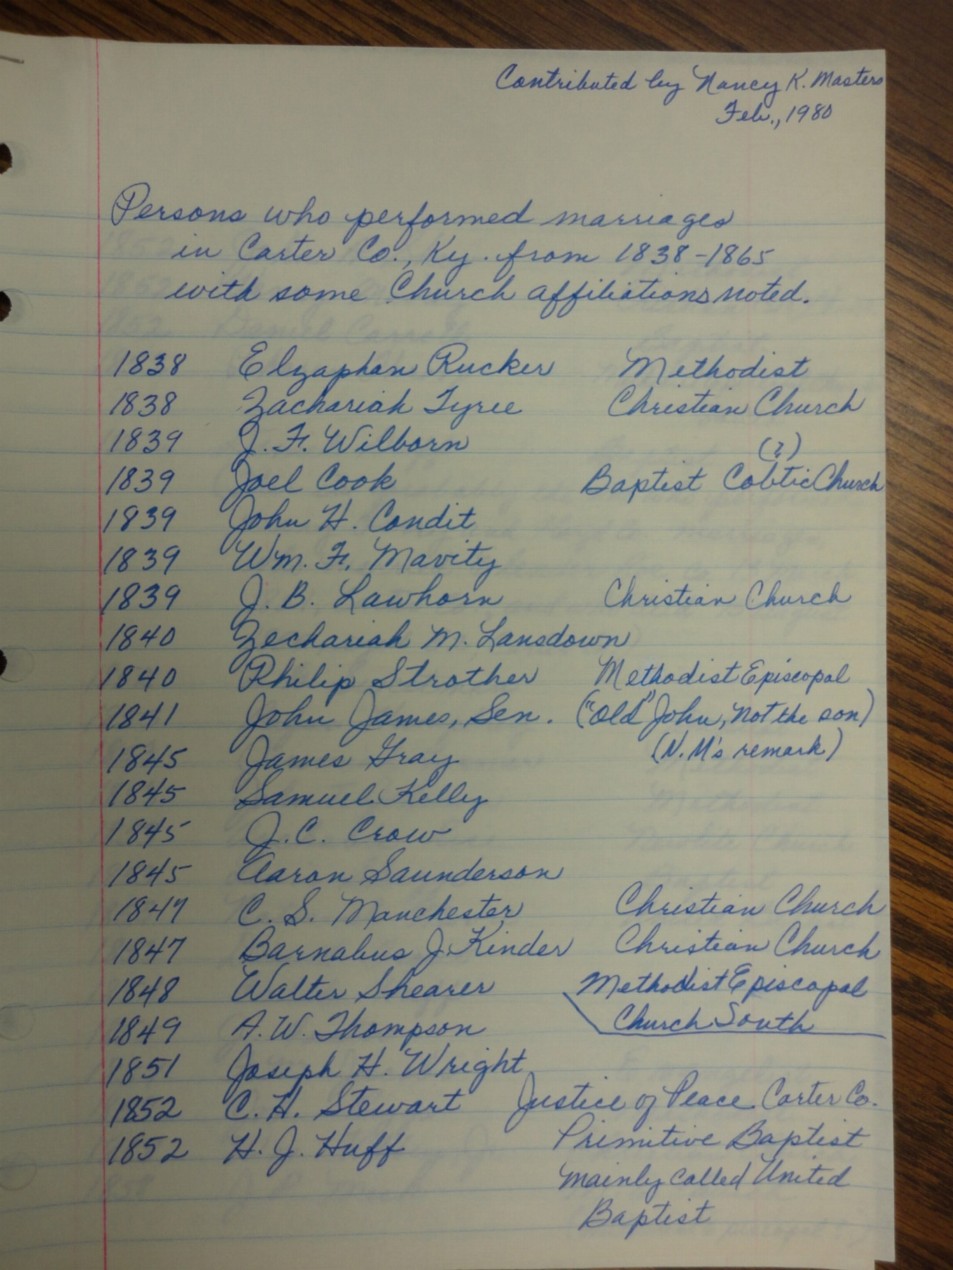 Contributed by Nancy K. Masters
Feb., 1980
Persons who performed marriages
in Carter Co., Ky. from 1838-1865
with some Church affiliations noted.
1838 Elzaphan Rucker Methodist
1838 Zachariah Tyree Christian Church
1839 J. F. Wilborn (?)
1839 Joel Cook Baptist Cobtic Church
1839 John H. Condit
1839 Wm. F. Mavity
1839 J. B. Lawhorn Christian Church
1840 Zechariah M. Lansdown
1840 Philip Strother Methodist Episcopal
1841 John James, Sen. ("Old" John, not the son)
1845 James Gray (N.M's remark)
1845 Samuel Kelly
1845 J. C. Crow
1845 Aaron Saunderson
1847 C. S. Manchester Christian Church
1847 Barnabus J. Kinder Christian Church
1848 Walter Shearer Methodist Episcopal
1849 A. W. Thompson Church South
1851 Joseph H. Wright
1852 C. H. Stewart Justice of Peace Carter Co.
1852 H. J. Huff Primitive Baptist
mainly called United
Baptist